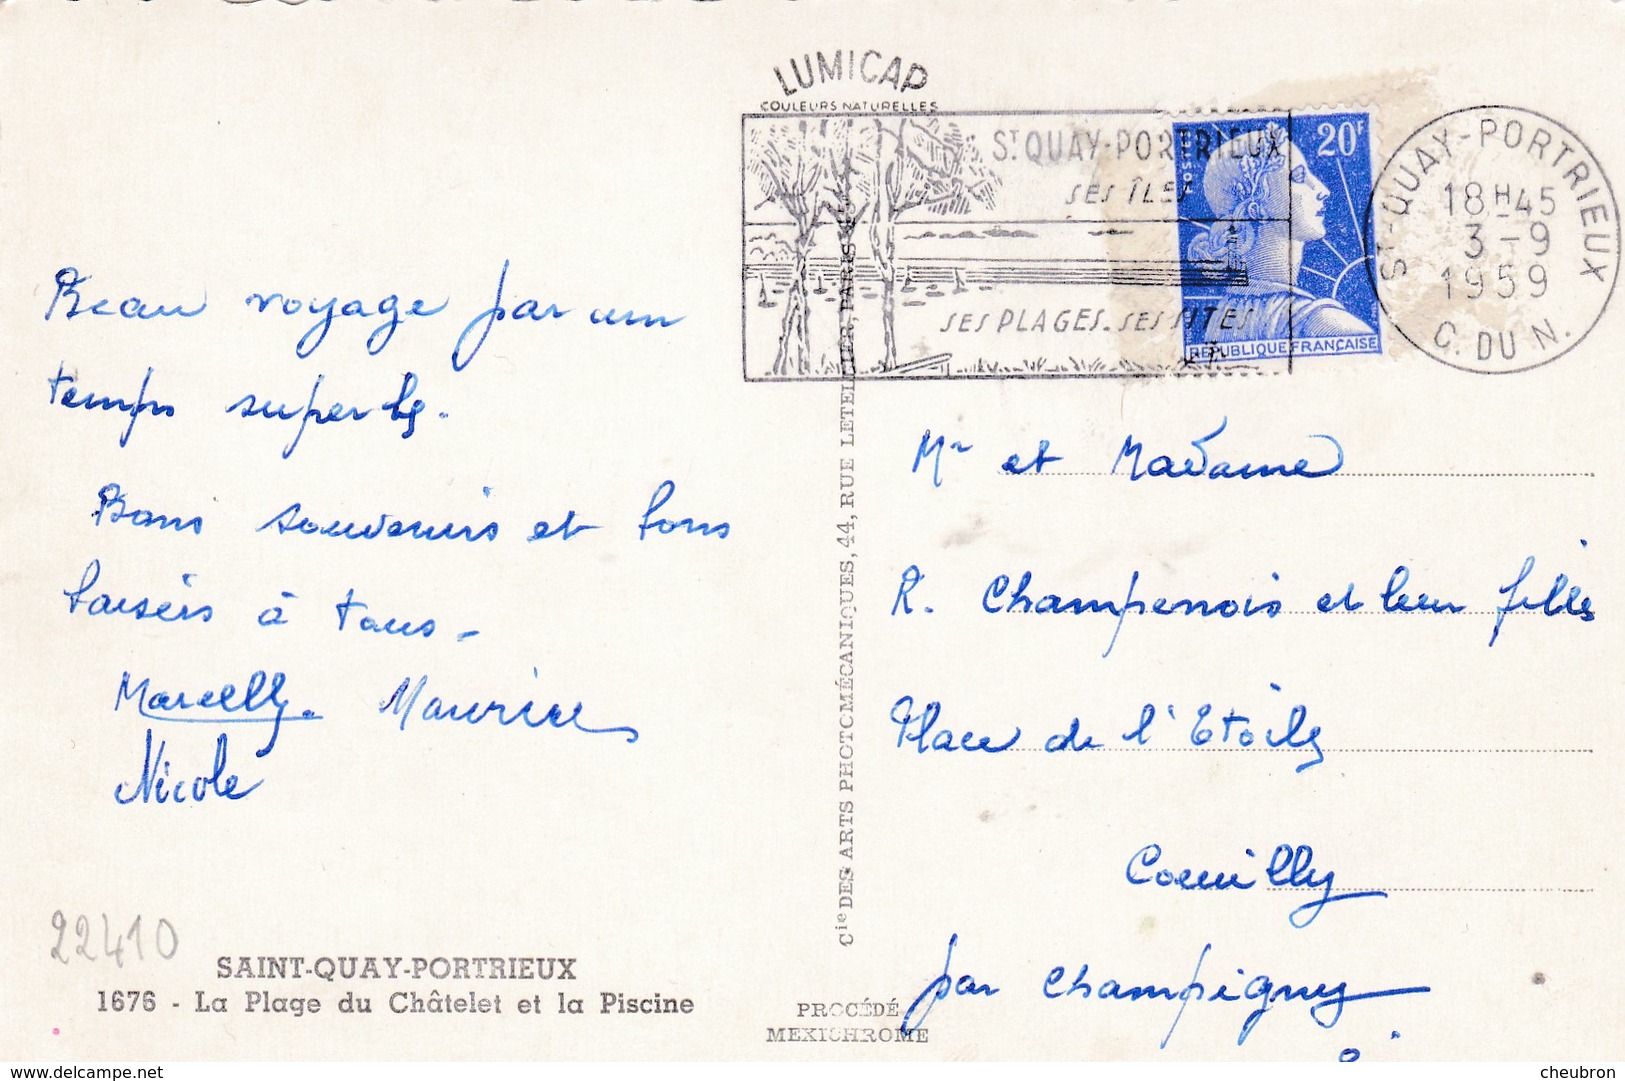 LUMICAP
COULEURS NATURELLES
ST QUAY-PORTRIEUX
SES ÎLES
SES PLAGES. SES SITES
POSTES
20F
REPUBLIQUE FRANÇAISE
ST-QUAY-PORTRIEUX
18H45
3-9
1959
C. DU N.
Beau voyage par un
temps superbe.
Bons souvenirs et bons
baisers à tous -
Marcelle. Maurice
Nicole
22410
SAINT-QUAY-PORTRIEUX
1676 - La Plage du Châtelet et la Piscine
Cie DES ARTS PHOTOMÉCANIQUES, 44, RUE LETELLIER, PARIS
PROCÉDÉ
MEXICHROME
Mr et Madame
R. Champenois et leur filles
Place de l'Etoile
Coeuilly
par Champigny
Delcampe.net
cheubron